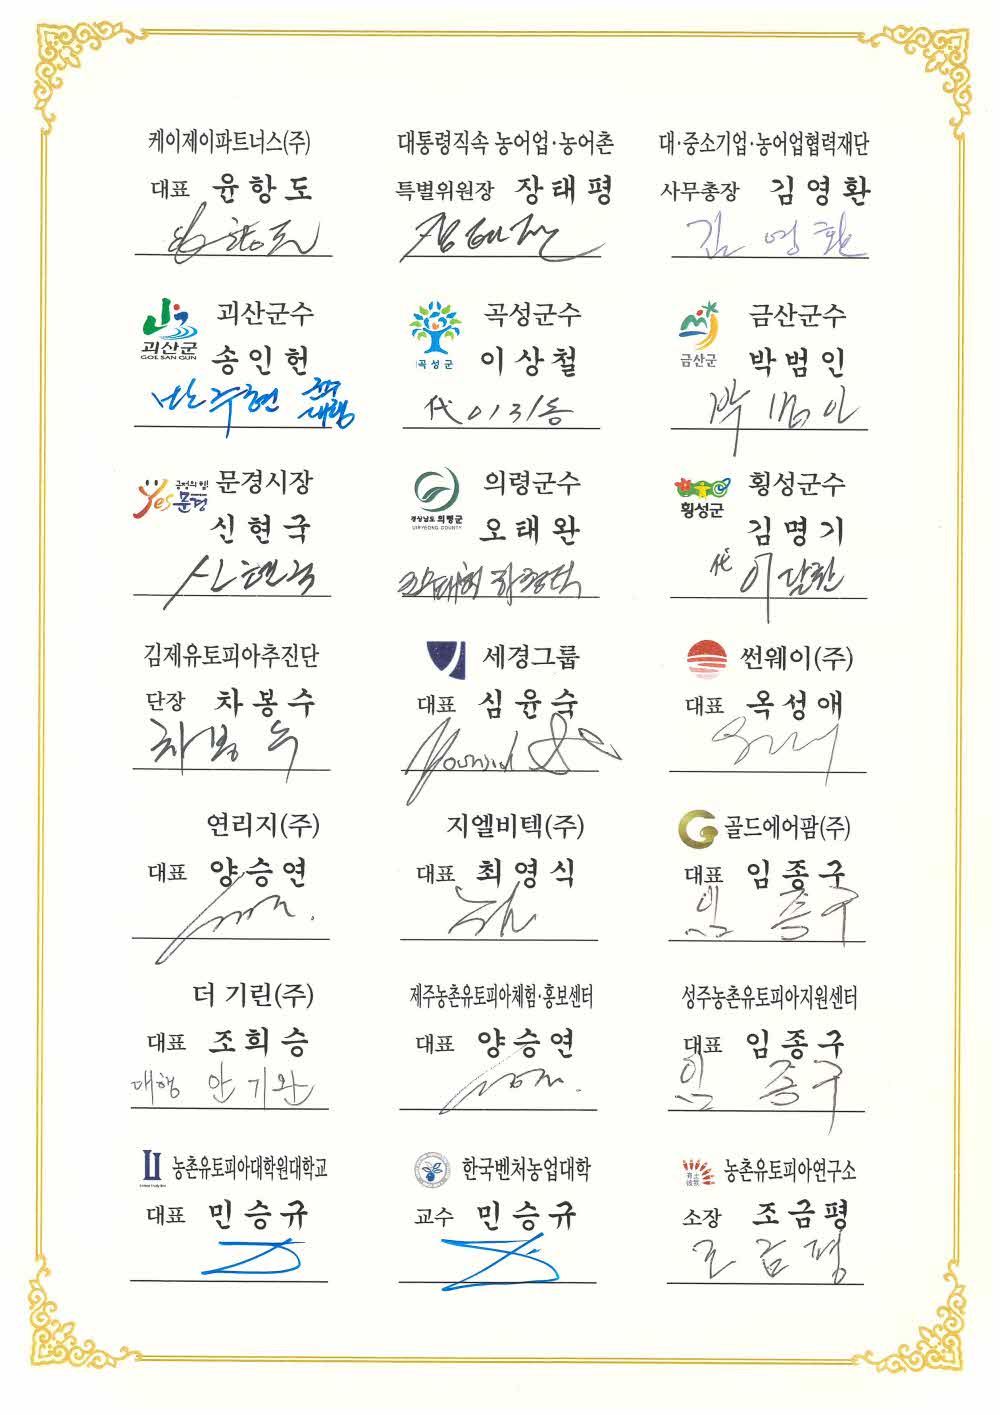 케이제이파트너스(주)
대표 윤항도
대통령직속 농어업·농어촌
특별위원장 장태평
대·중소기업·농어업협력재단
사무총장 김영환
김영환
괴산군
GOESAN GUN
괴산군수
송인헌
곡성군
곡성군수
이상철
代 이이동
금산군
금산군수
박범인
박범인
긍정의 힘!
Yes 문경
문경시장
신현국
신현국
경상남도 의령군
UIRYEONG COUNTY
의령군수
오태완
횡성군
횡성군수
김명기
代 이달환
김제유토피아추진단
단장 차봉수
차봉수
세경그룹
대표 심윤숙
썬웨이(주)
대표 옥성애
연리지(주)
대표 양승연
지엘비텍(주)
대표 최영식
G 골드에어팜(주)
대표 임종구
임종구
더 기린(주)
대표 조희승
대행 안기완
제주농촌유토피아체험·홍보센터
대표 양승연
성주농촌유토피아지원센터
대표 임종구
임종구
농촌유토피아대학원대학교
대표 민승규
한국벤처농업대학
교수 민승규
농촌유토피아연구소
소장 조금평
조금평